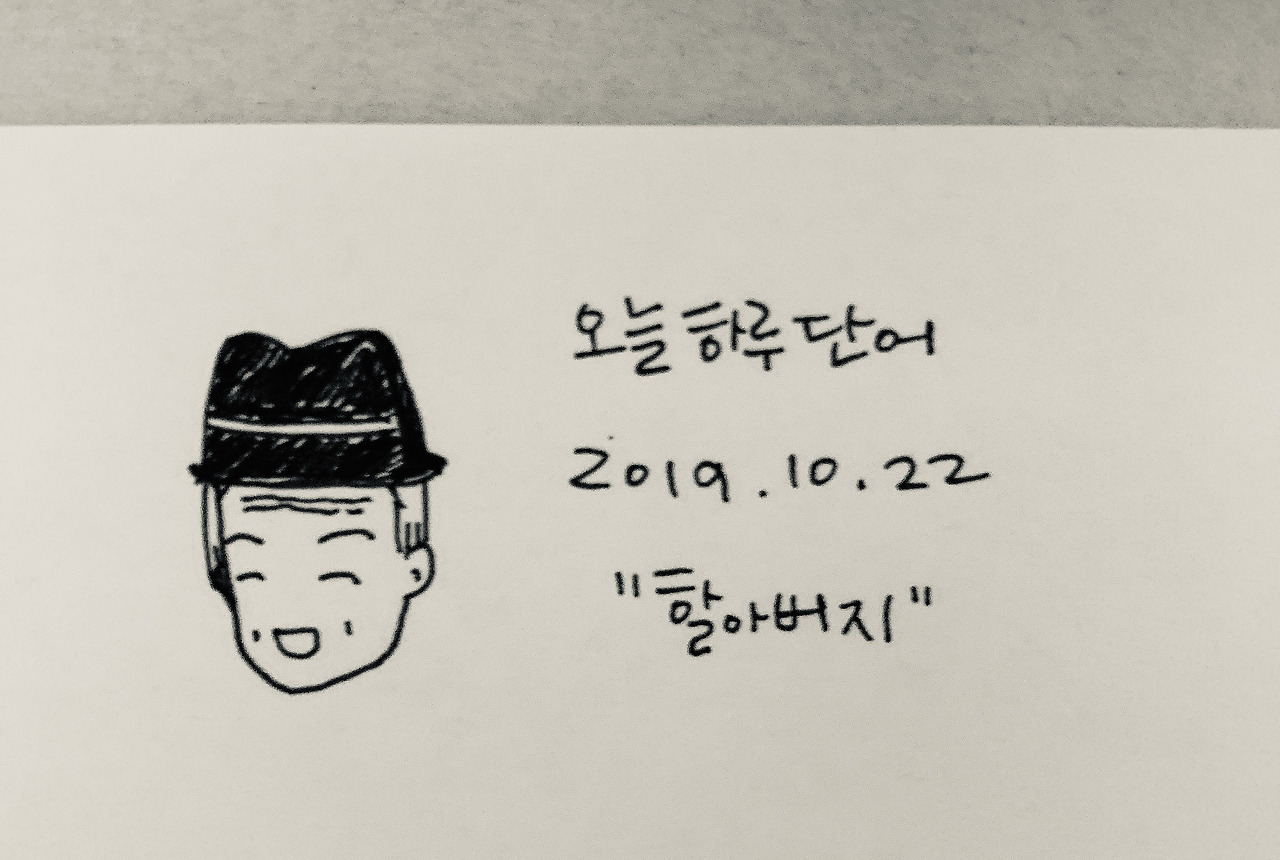 오늘 하루 단어
2019.10.22
"할아버지"